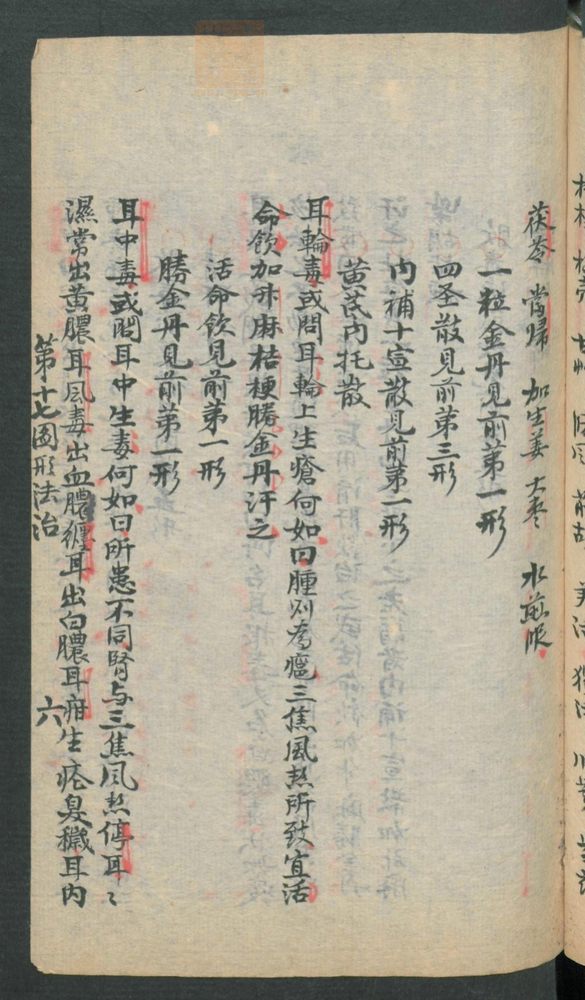 茯苓 當歸 加生姜 大枣 水煎服
一粒金丹見前第一形
四圣散見前第三形
内補十宣散見前第一形
黄芪内托散
耳輪毒或問耳輪上生瘡何如曰腫則為癰三焦風热所致宜活
命飲加升麻桔梗勝金丹汗之
活命飲見前第一形
勝金丹見前第一形
耳中毒或問耳中生毒何如曰所患不同腎与三焦风热停耳〻
濕常出黄膿耳风毒出血膿纏耳出白膿耳疳生疮臭穢耳内
第十七圖形法治 六